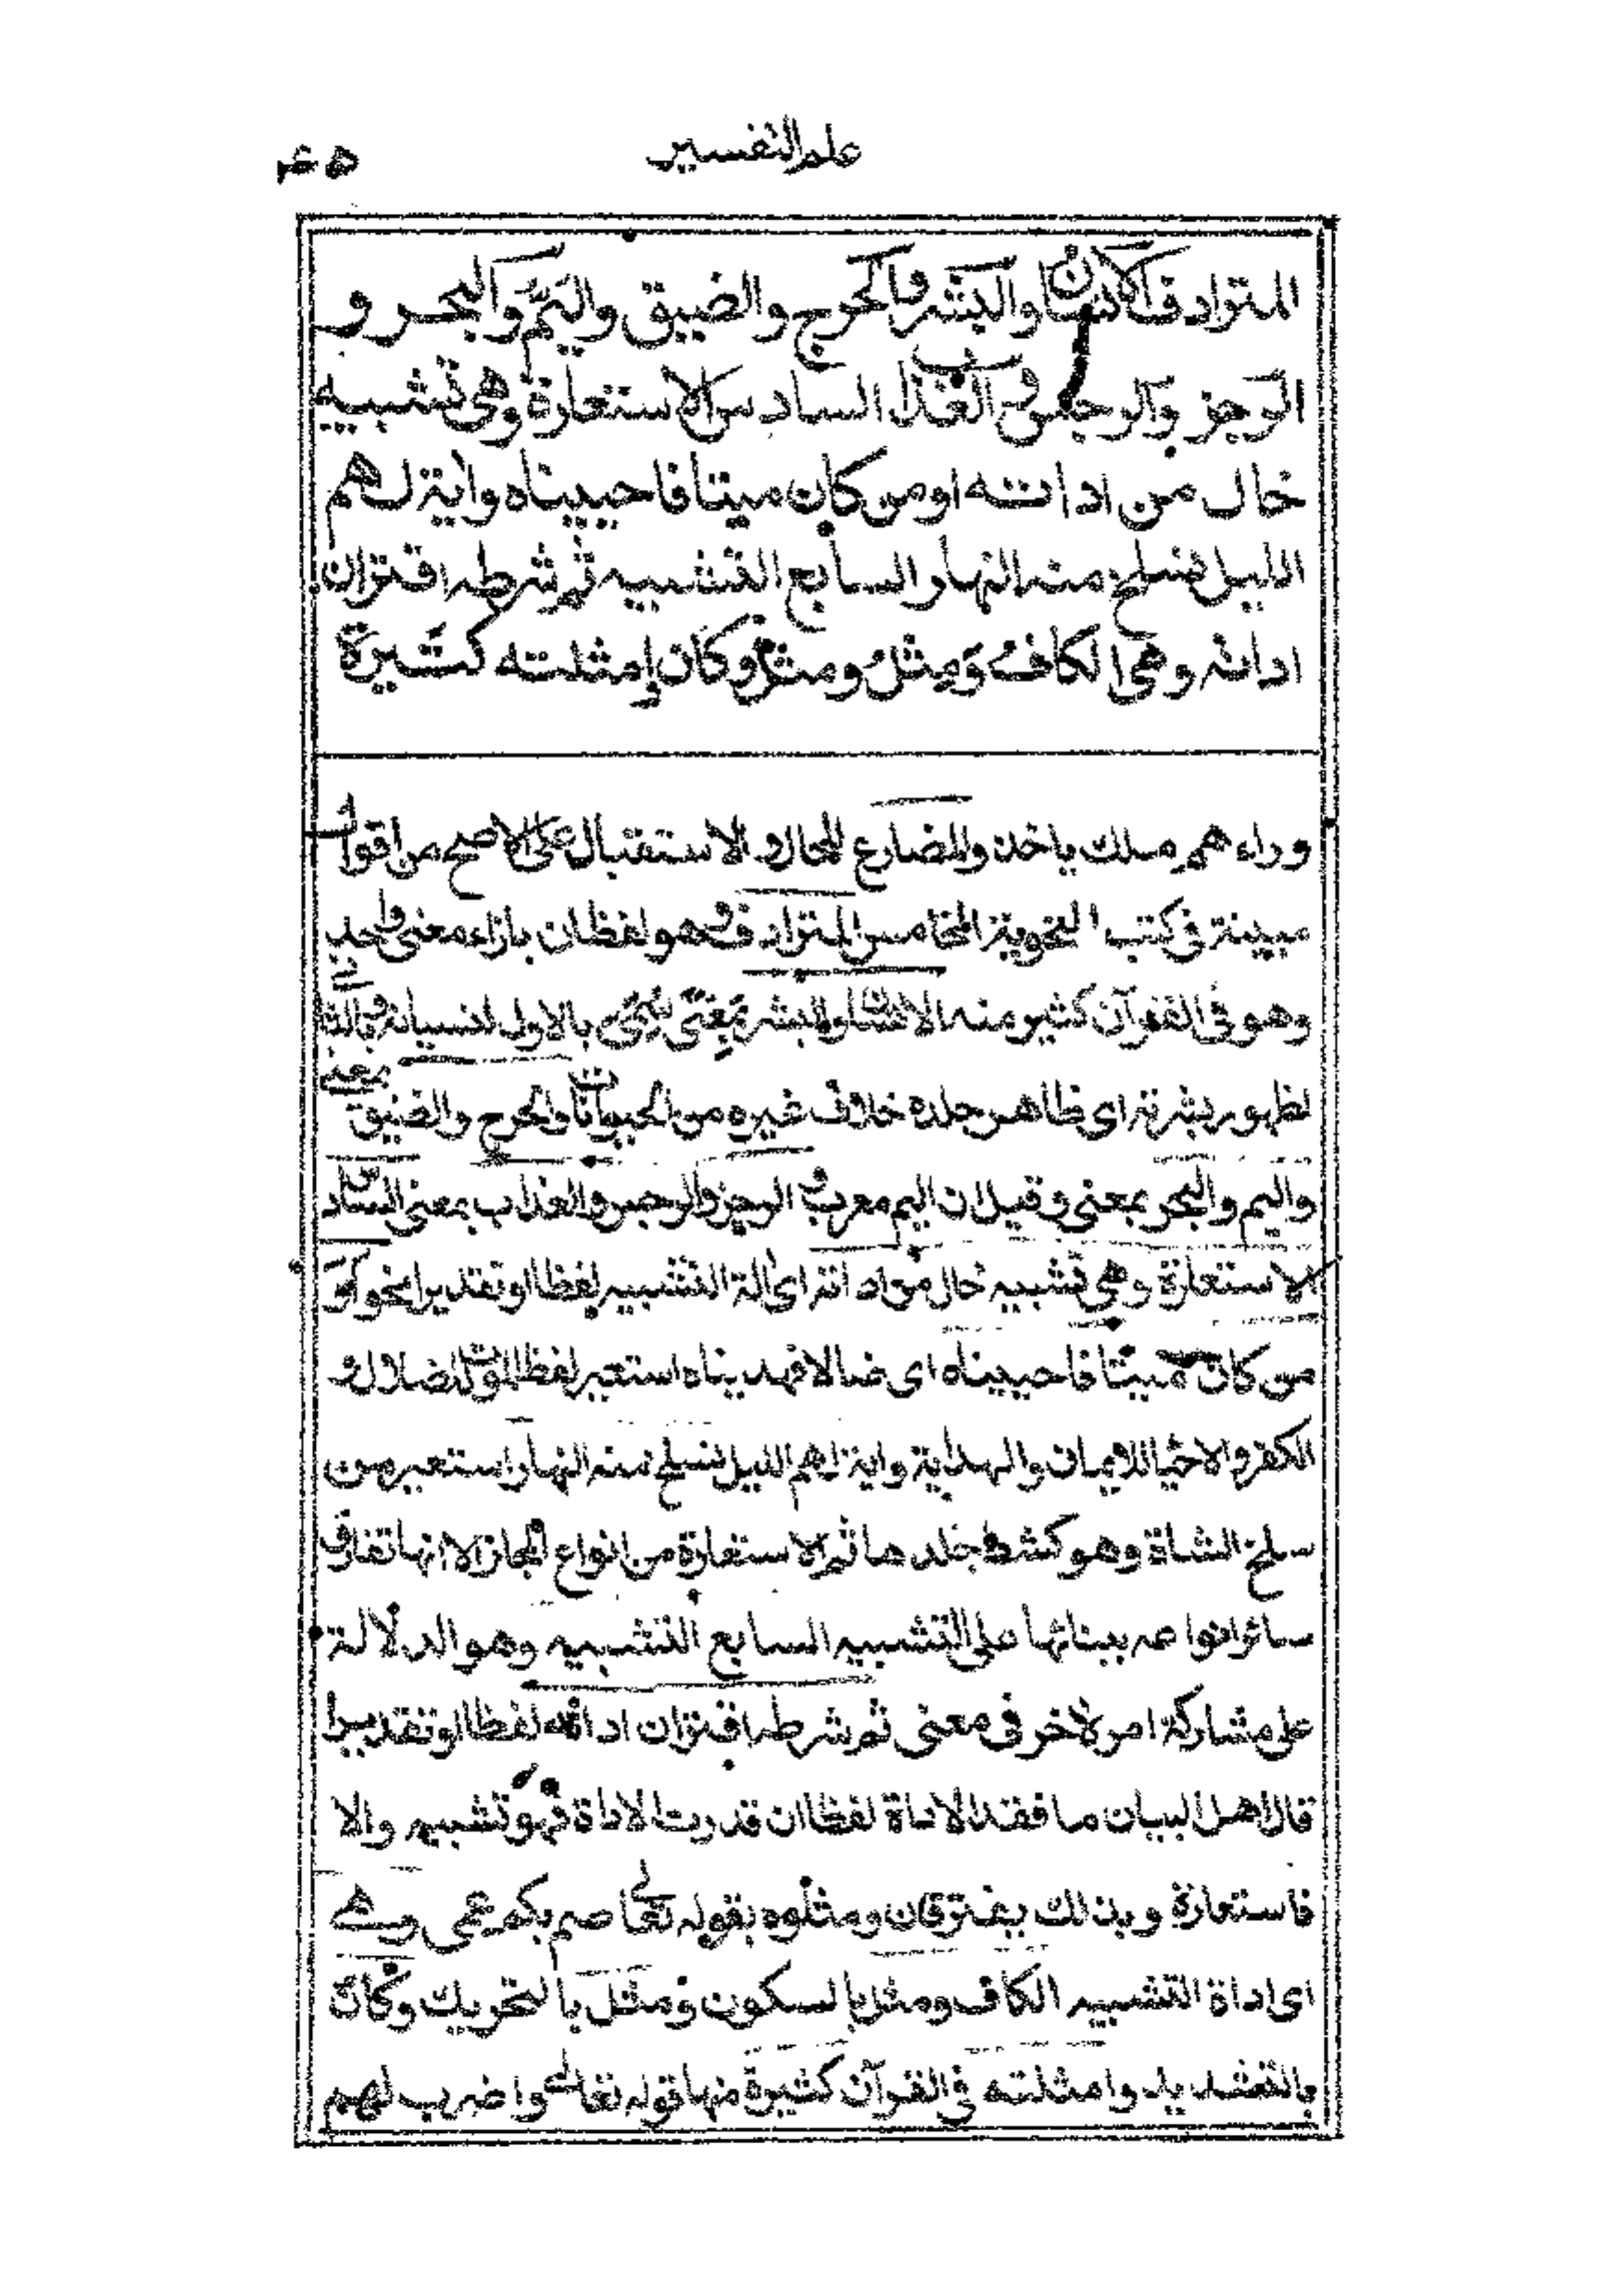 علم التفسير
٤٥
المترادف كالانسان والبشر والحرج والضيق واليَمّ والبحر و
الرجز والرجس والعذاب السادس الاستعارة وهي تشبيه
خال من اداته او من كان ميتا فاحييناه واية لهم
الليل نسلخ منه النهار السابع التشبيه ثم شرطه اقتران
اداته وهي الكاف وَمِثل ومثل وكان وامثلته كثيرة
وراءهم ملك ياخذ والمضارع للحال والاستقبال على الاصح من اقوال
مبينة فى كتب النحوية الخامس المترادف وهو لفظان بازاء معنى واحد
وهو فى القرآن كثير منه الانسان والبشر بمعنى سمى بالاول لنسيانه وبالثانى
لظهور بشرته اى ظاهر جلده خلاف غيره من الحيوانات والحرج والضيق بمعنى
واليم والبحر بمعنى وقيل ان اليم معرب والرجز والرجس والعذاب بمعنى السادس
الاستعارة وهى تشبيه خال من اداته اى الة التشبيه لفظا او تقديرا نحو اَوَ
من كان ميتا فاحييناه اى ضالا فهديناه استعير لفظ الموت للضلال و
الكفر والاحيا للايمان والهداية واية لهم الليل نسلخ منه النهار استعير من
سلخ الشاة وهو كشط جلدها ثم الاستعارة من انواع المجاز الا انها تفارق
سائر انواعه ببنائها على التشبيه السابع التشبيه وهو الدلالة
على مشاركة امر لاخر فى معنى ثم شرطه اقتران اداته لفظا او تقديرا
قال اهل البيان ما فقد الاداة لفظا ان قدرت الاداة فهو تشبيه والا
فاستعارة وبذلك يفترقان ومثلوه بقوله تعالى صم بكم عمى وهى
اى اداة التشبيه الكاف ومثل بالسكون ومثل بالتحريك وكان
بالتشديد وامثلته فى القرآن كثيرة منها قوله تعالى واضرب لهم